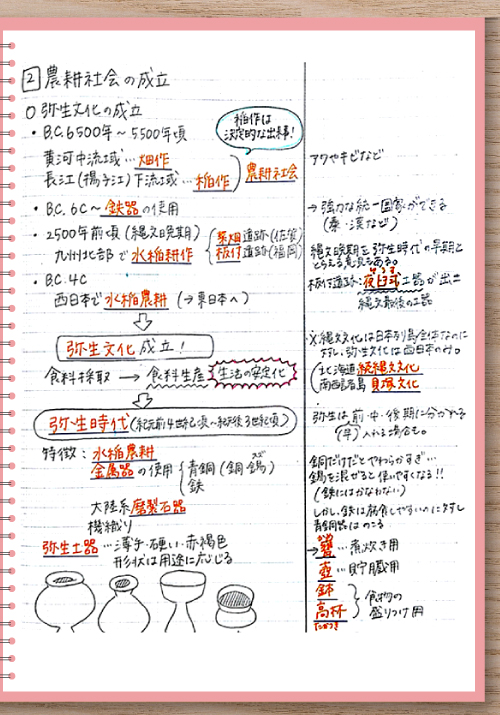 2 農耕社会の成立
○弥生文化の成立
・B.C.6500年〜5500年頃
稲作は
決定的な出来事!
黄河中流域…畑作
長江(揚子江)下流域…稲作
農耕社会
アワやキビなど
・B.C.6C〜鉄器の使用
→強力な統一国家ができる
(秦・漢など)
・2500年前頃(縄文晩期)
九州北部で水稲耕作
菜畑遺跡(佐賀)
板付遺跡(福岡)
縄文晩期を弥生時代の早期と
とらえる意見もある。
板付遺跡:夜臼式土器が出土
縄文最後の土器
・B.C.4C
西日本で水稲農耕(→東日本へ)
弥生文化成立!
※縄文文化は日本列島全体なのに
対し、弥生文化は西日本のみ。
北海道 続縄文文化
南西諸島 貝塚文化
食料採取→食料生産 生活の安定化
弥生時代(紀元前4世紀頃〜紀元後3世紀頃)
弥生は前・中・後期に分かれる
(早)入れる場合も。
特徴:水稲農耕
金属器の使用
青銅(銅・錫)
スズ
鉄
銅だけだとやわらかすぎ…
錫を混ぜると使いやすくなる!!
(鉄にはかなわない)
しかし、鉄は腐食しやすいのに対し
青銅器はのこる
大陸系磨製石器
機織り
弥生土器…薄手・硬い・赤褐色
形状は用途に応じる
→甕…煮炊き用
壺…貯蔵用
鉢
高杯
たかつき
食物の
盛りつけ用